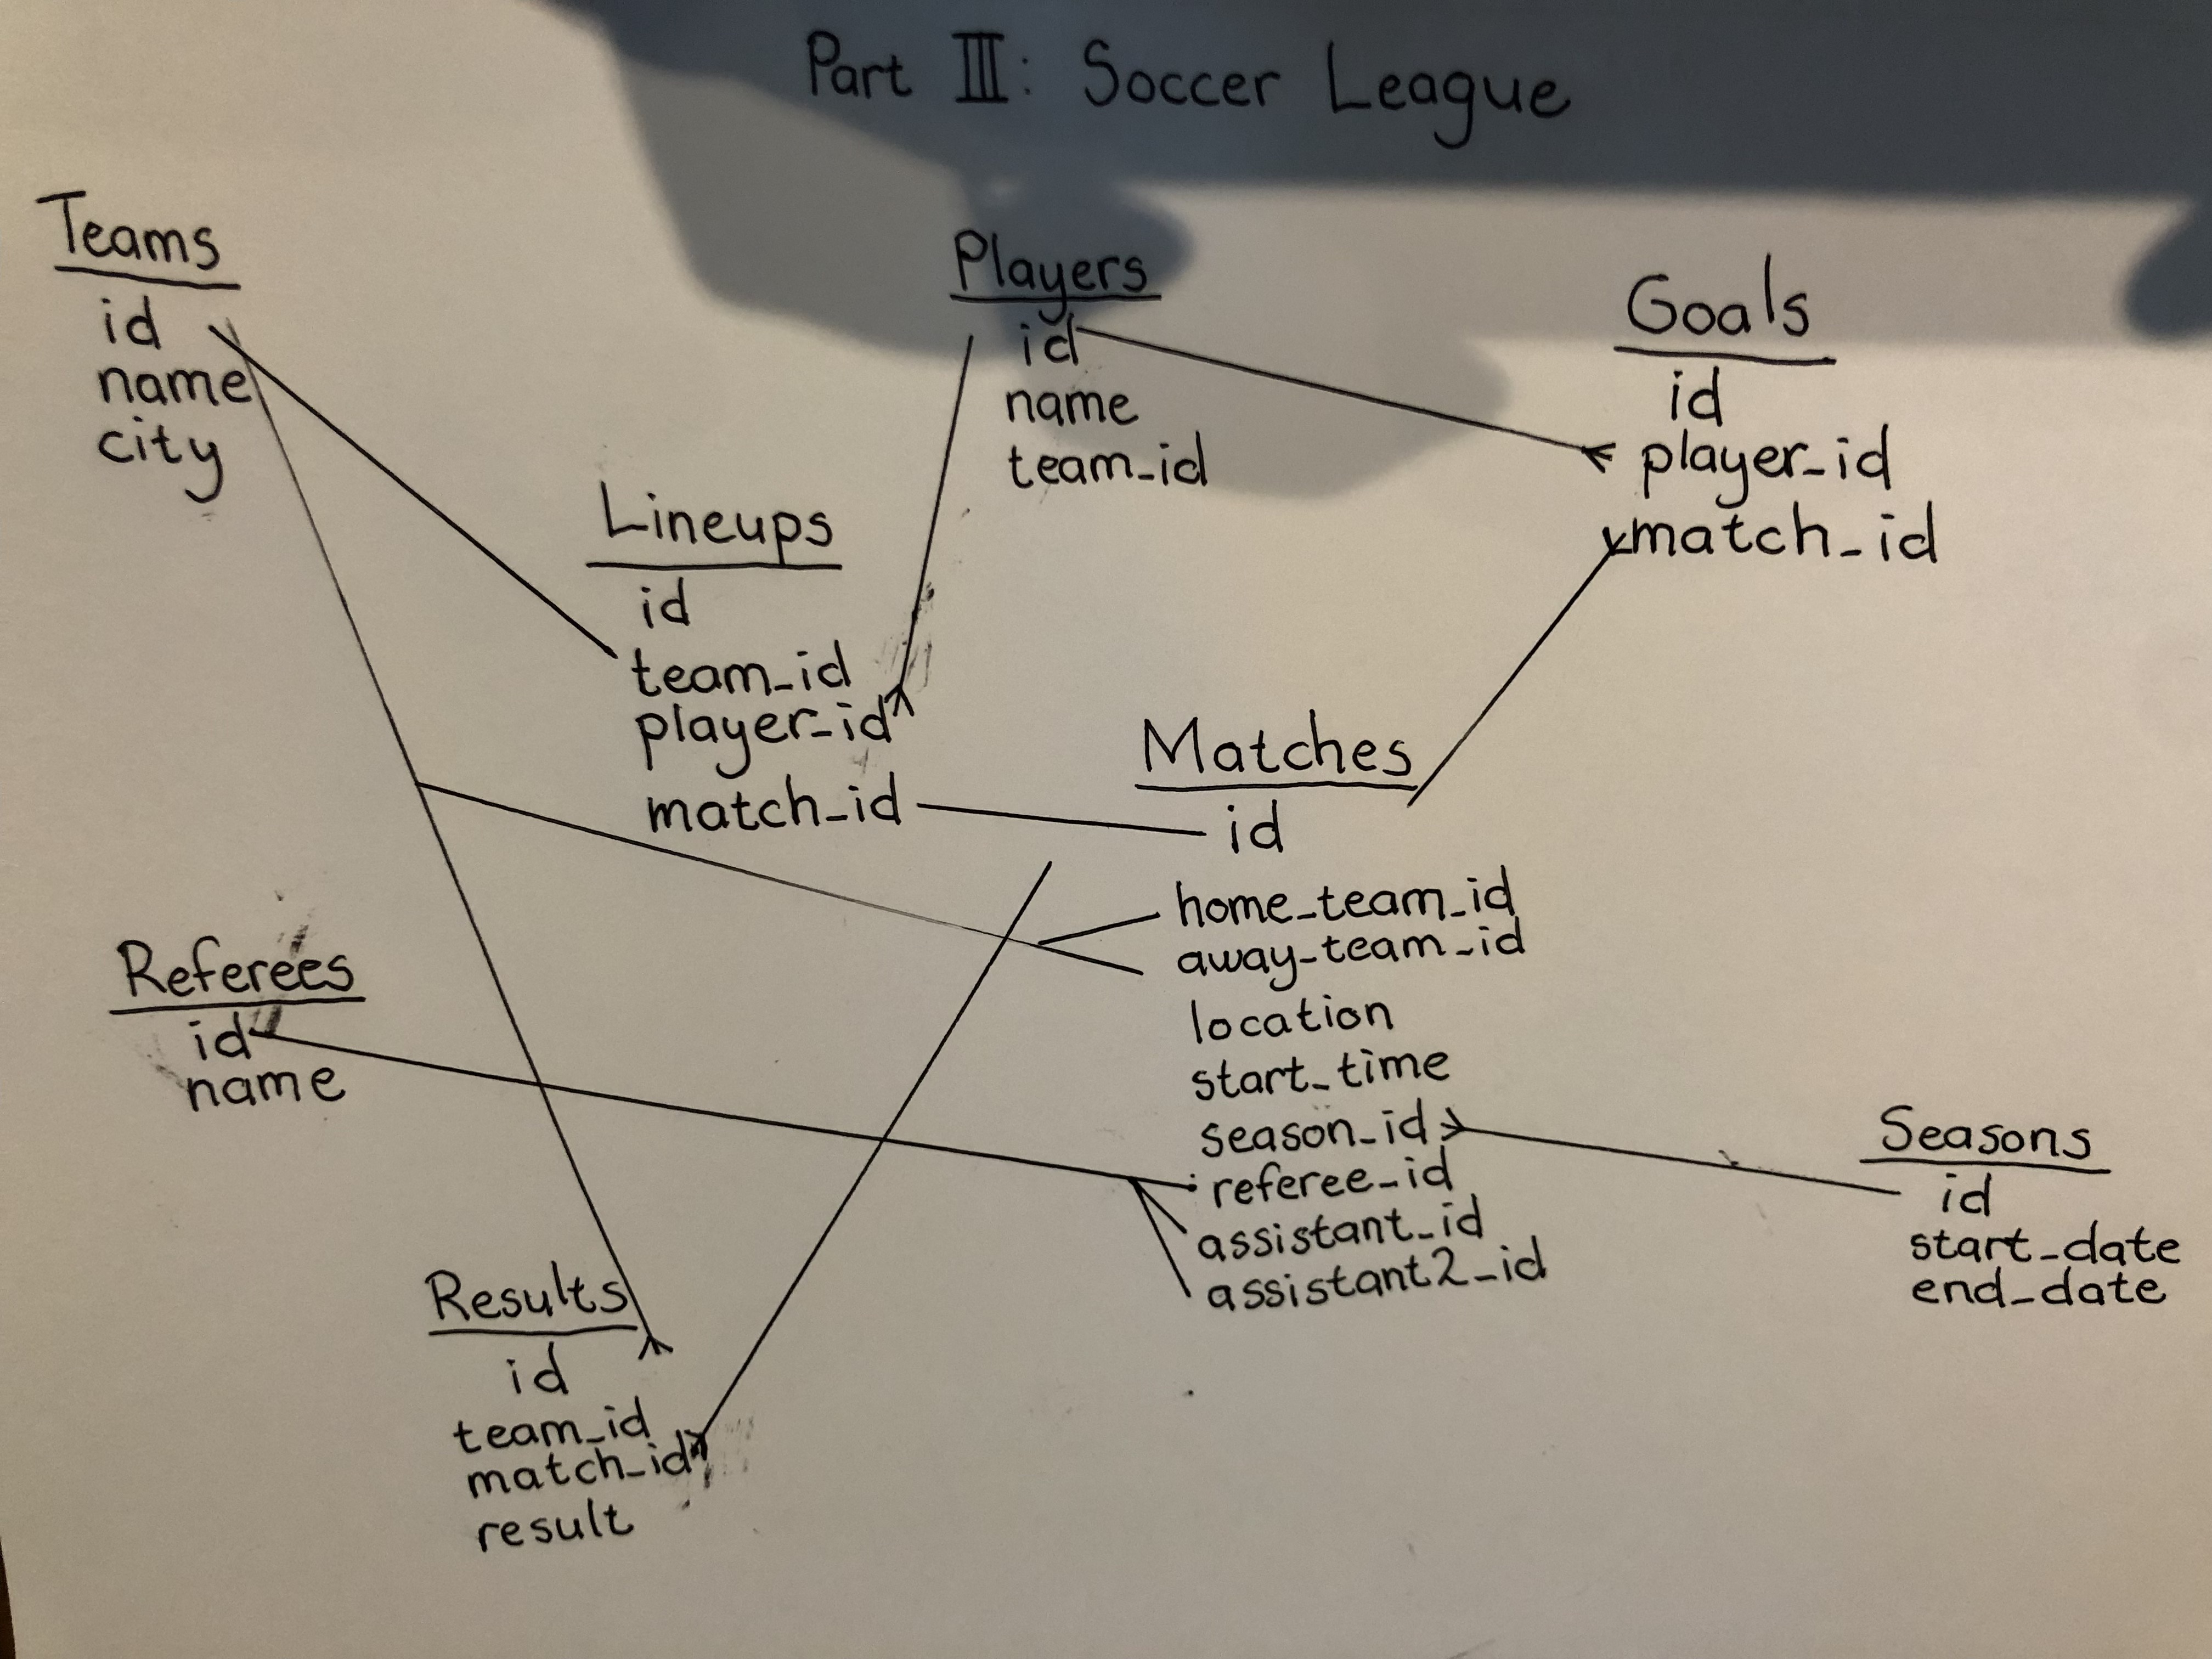 Part III: Soccer League
Teams
id
name
city
Players
id
name
team_id
Goals
id
player_id
match_id
Lineups
id
team_id
player_id
match_id
Matches
id
home_team_id
away_team_id
location
start_time
season_id
referee_id
assistant_id
assistant2_id
Referees
id
name
Seasons
id
start_date
end_date
Results
id
team_id
match_id
result